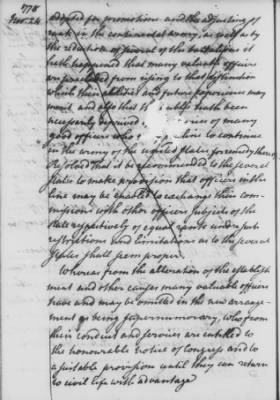 1778
Nov. 24
adopted for promotions and the adjusting of
rank in the continental army, as well as by
the reduction of several of the battalions it
hath happened that many valuable officers
are precluded from rising to that distinction
which their abilities and future services may
merit and also that the public hath been
necessarily deprived services of many
good officers who to continue
in the army of the united states for remedy thereof
Resolved that it be recommended to the several
states to make provision that officers in the
line may be enabled to exchange their com-
missions with other officers subjects of the
state respectively of equal rank under such
restrictions and limitations as to the several
States shall seem proper.
Whereas from the alteration of the establish
ment and other causes many valuable officers
have and may be omitted in the new arrange-
ment as being supernumerary, who from
their conduct and services are entitled to
the honourable notice of Congress and to
a suitable provision until they can return
to civil life with advantage